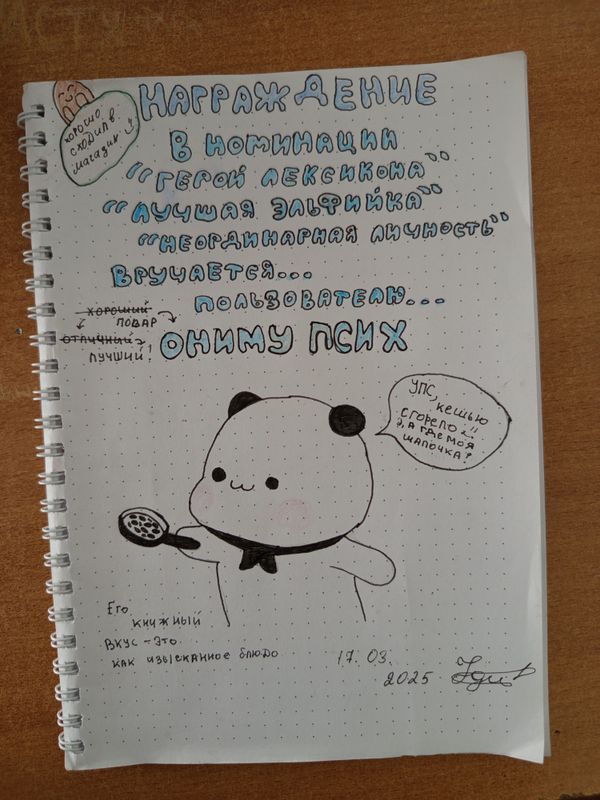 НАГРАЖДЕНИЕ
В НОМИНАЦИИ
"ГЕРОЙ ЛЕКСИКОНА"
"ЛУЧШАЯ ЭЛЬФИЙКА"
"НЕОРДИНАРНАЯ ЛИЧНОСТЬ"
ВРУЧАЕТСЯ...
ПОЛЬЗОВАТЕЛЮ...
ОНИМУ ПСИХ
ХОРОШО
СХОДИЛ В
МАГАЗИН
ХОРОШИЙ
ПОВАР
ОТЛИЧНИЙ
ЛУЧШИЙ!
УПС,
КЕШЬЮ
СГОРЕЛО
Э, А ГДЕ МОЯ
ШАПОЧКА?
Его
КНИЖНЫЙ
ВКУС - ЭТО
КАК ИЗЫСКАННОЕ БЛЮДО
17.03.
2025